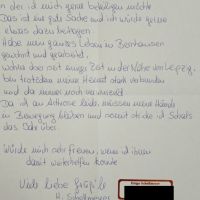 an der ich mich gerne beteiligen möchte
Das ist eine gute Sache und ich würde gerne
etwas dazu beitragen
Habe mein ganzes Leben in
gewohnt und gearbeitet,
wohne zwar seit einiger Zeit in der Nähe von Leipzig,
bin trotzdem meiner Heimat stark verbunden
und da immer noch
Da ich an Arthrose leide, müssen meine Hände
in Bewegung bleiben und somit stricke ich Schals
das Jahr über.
Würde mich sehr freuen, wenn ich ihnen
damit weiterhelfen konnte
Viele liebe Grüße